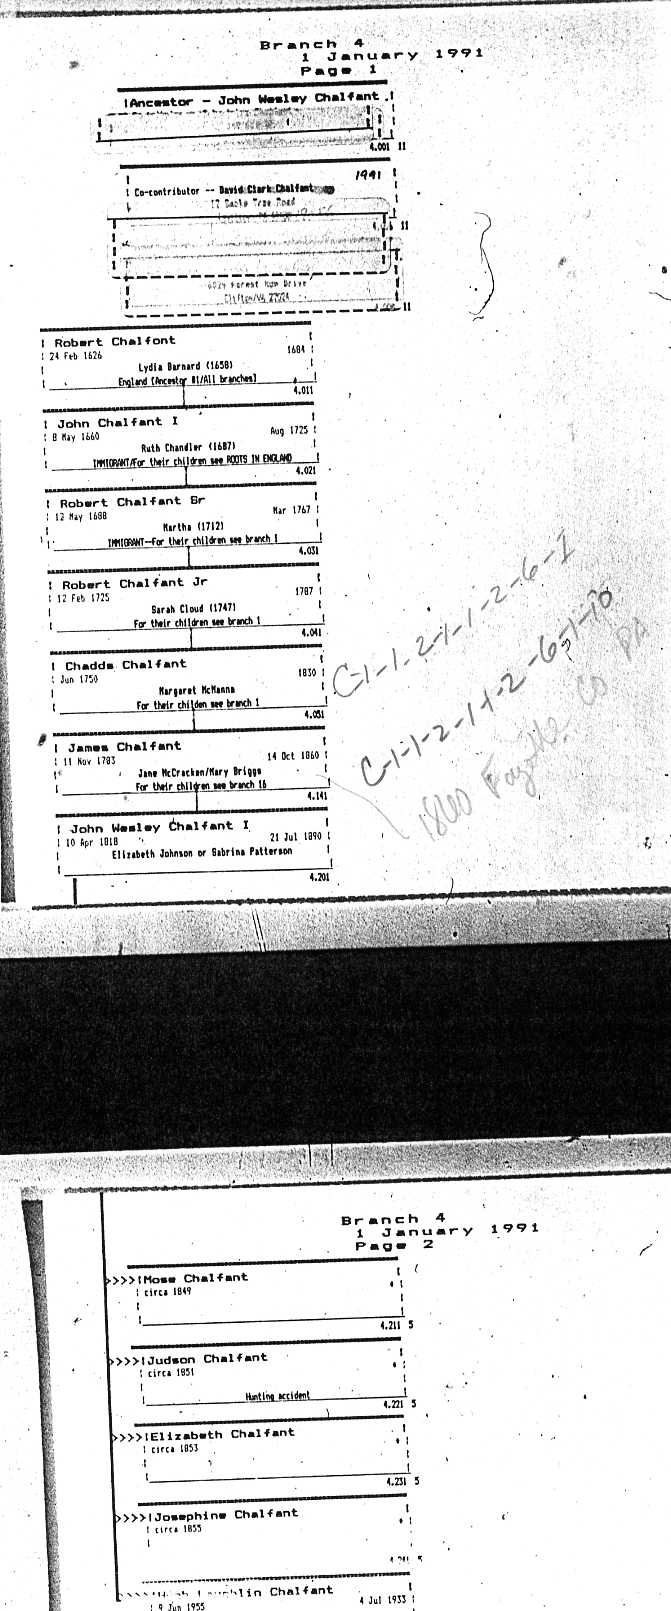 Branch 4
1 January 1991
Page 1
Ancestor - John Wesley Chalfant
4.001 11
1991
Co-contributor -- David Clark Chalfant
17 Gable Tree Road
11
6024 Forest Run Drive
Clifton/VA 22024
11
Robert Chalfont
24 Feb 1626 1684
Lydia Barnard (1658)
England [Ancestor #1/All branches]
4.011
John Chalfant I
8 May 1660 Aug 1725
Ruth Chandler (1687)
IMMIGRANT/For their children see ROOTS IN ENGLAND
4.021
Robert Chalfant Sr
12 May 1688 Mar 1767
Martha (1712)
IMMIGRANT--For their children see branch 1
4.031
Robert Chalfant Jr
12 Feb 1725 1787
Sarah Cloud (1747)
For their children see branch 1
4.041
C-1-1-2-1-1-2-6-1
Chadds Chalfant
Jun 1750 1830
Margaret McManna
For their childen see branch 1
4.051
C-1-1-2-1-1-2-6-1-10
James Chalfant
11 Nov 1783 14 Oct 1860
Jane McCracken/Mary Briggs
For their children see branch 16
4.141
1860 Fayette Co PA
John Wesley Chalfant I
10 Apr 1818 21 Jul 1890
Elizabeth Johnson or Sabrina Patterson
4.201
Branch 4
1 January 1991
Page 2
>>>>Mose Chalfant
circa 1849
4.211 5
>>>>Judson Chalfant
circa 1851
Hunting accident
4.221 5
>>>>Elizabeth Chalfant
circa 1853
4.231 5
>>>>Josephine Chalfant
circa 1855
5
Chalfant
9 Jun 1955 4 Jul 1933